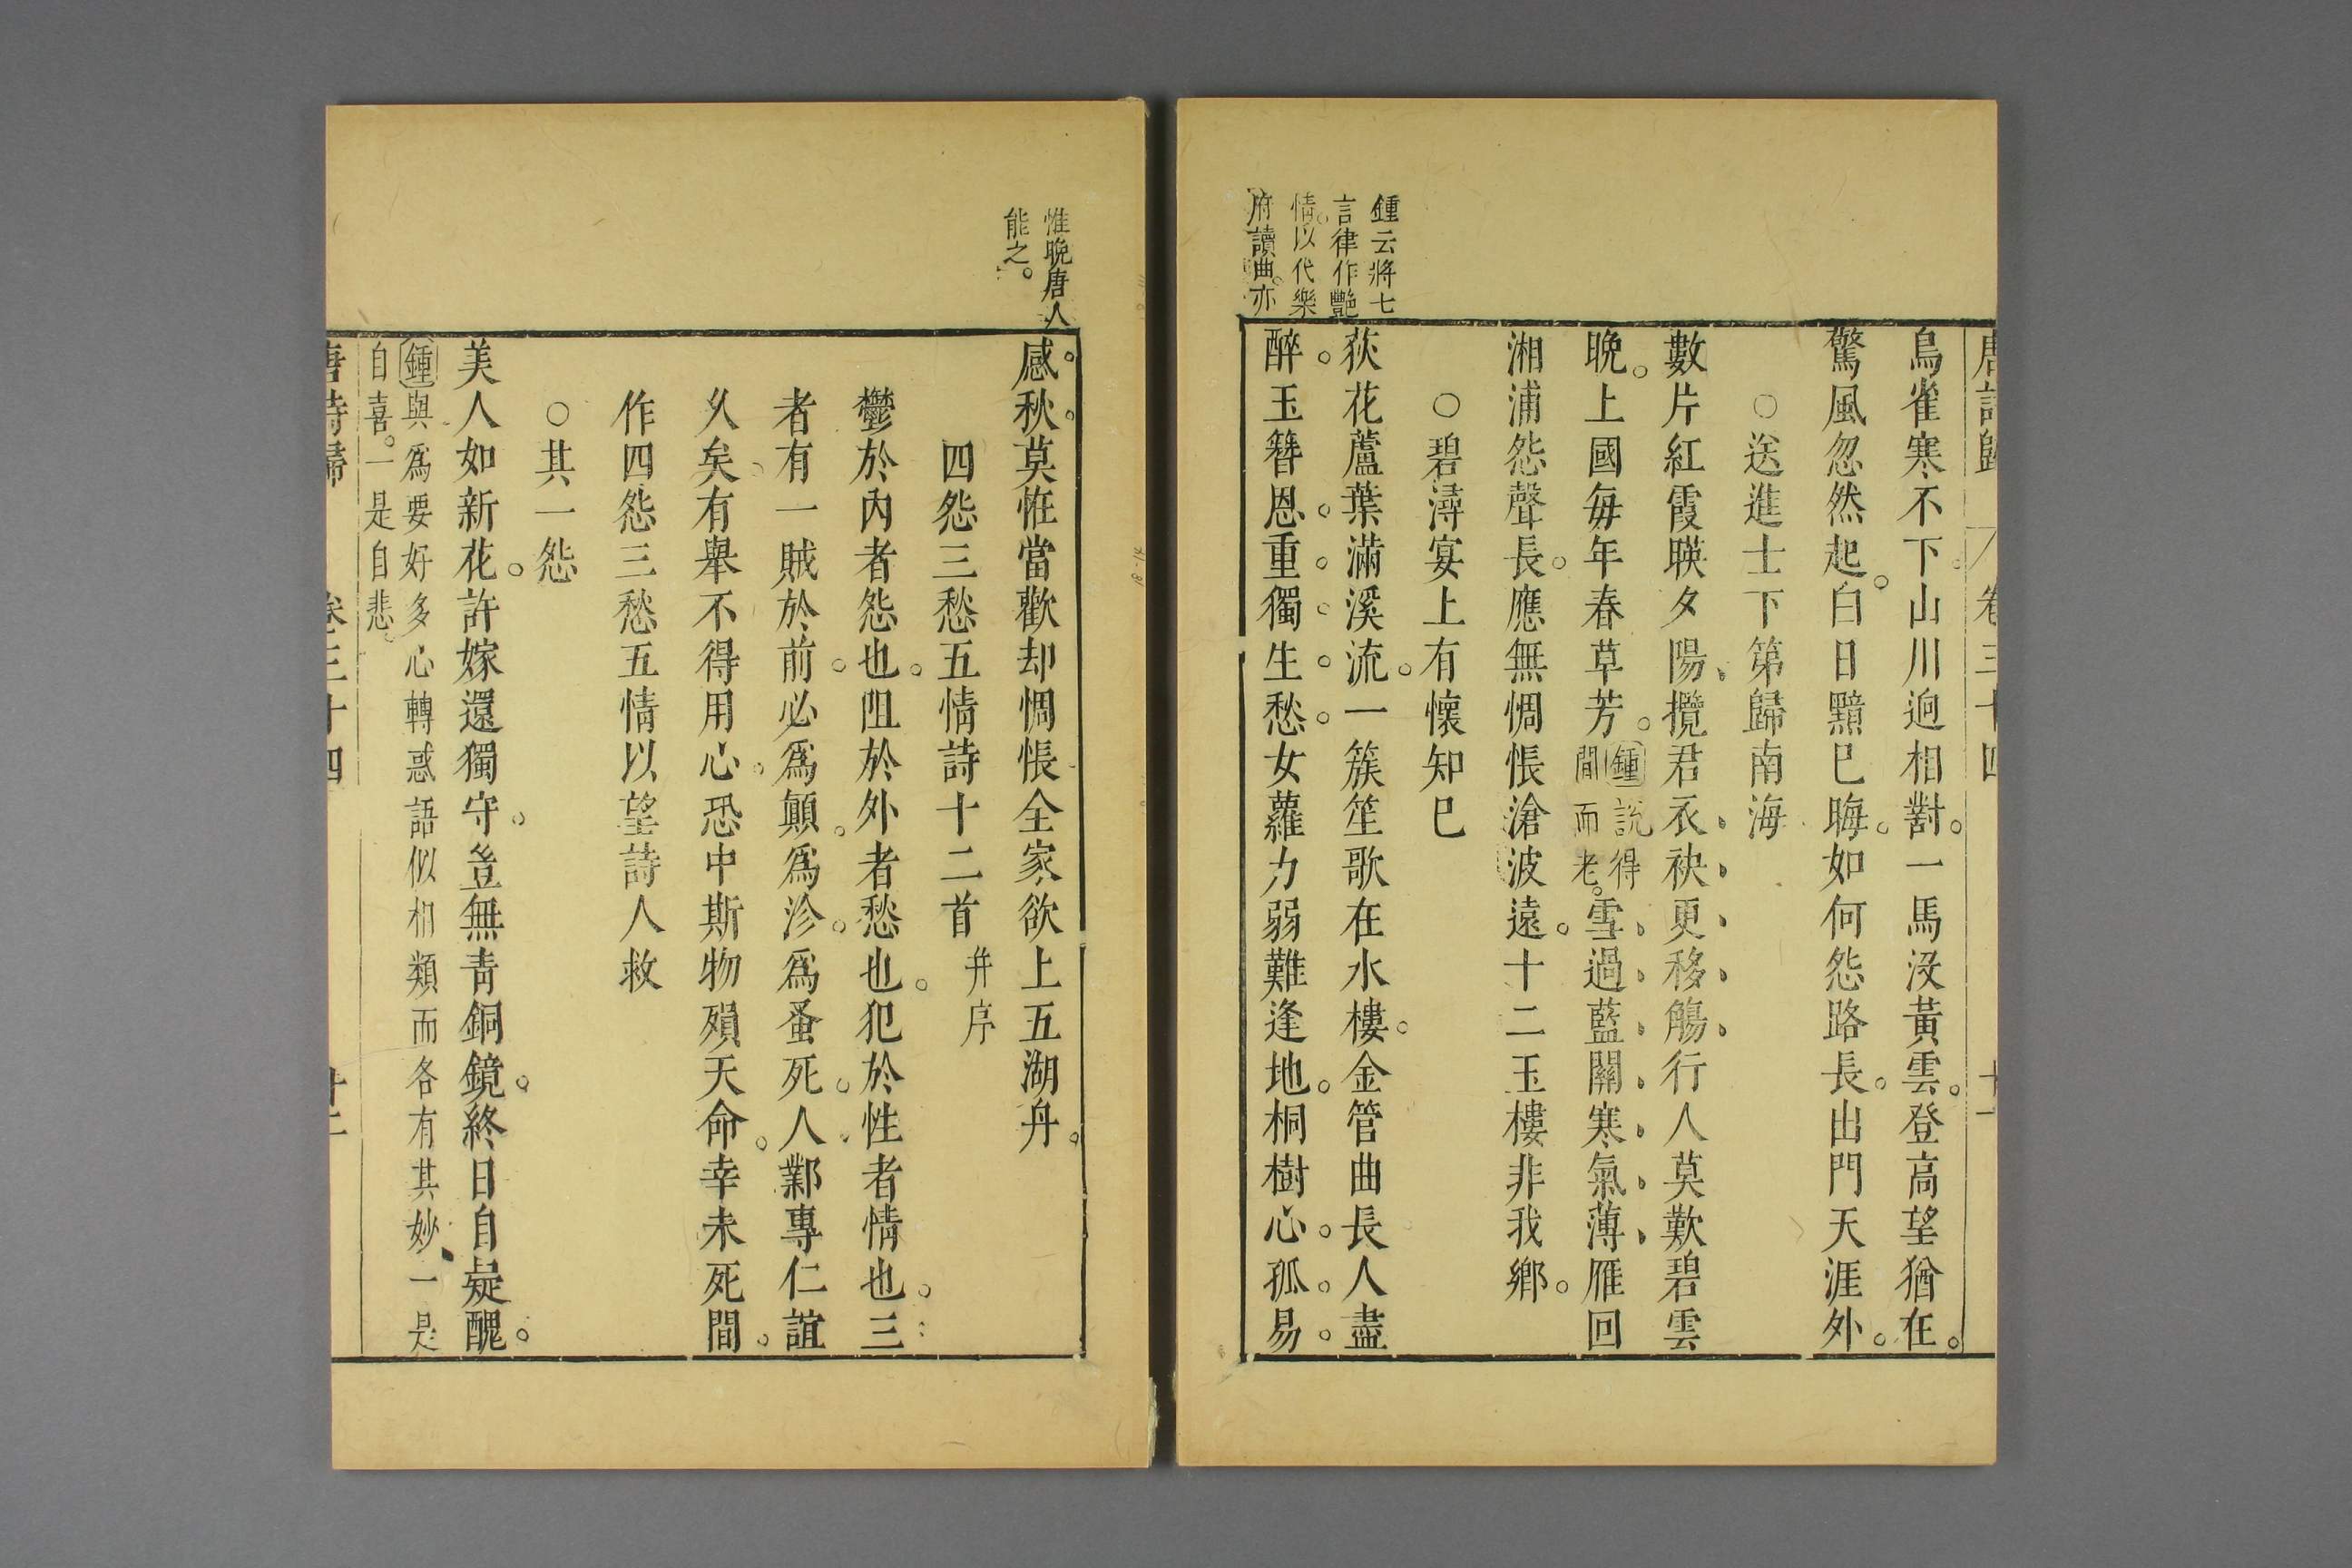 唐詩歸 卷三十四 十一
鳥雀寒不下山川迥相對。一馬沒黃雲。登高望猶在。
驚風忽然起。白日黯巳晦。如何怨路長。出門天涯外。
○送進士下第歸南海
數片紅霞暎夕陽、攬君衣、袂、更、移、觴、行人莫歎碧雲
晚。上國每年春草芳。鍾說得間而老。雪、過、藍、關、寒、氣、薄、雁回
湘浦怨聲長。應無惆悵滄波遠。十二玉樓非我鄉。
○碧潯宴上有懷知巳
荻花蘆葉滿溪流。一簇笙歌在水樓。金管曲長人盡
醉。玉簪恩。重。獨。生。愁。女蘿力弱難逢地。桐樹心。孤。易。
鍾云將七
言律作艷
情。以代樂
府讀曲。亦
惟晚唐人
能之。
感。秋。莫恠當歡却惆悵全家欲上五湖舟。
四怨三愁五情詩十二首 幷序
鬱於內者怨也。阻於外者愁也。犯於性者情也。三
者有一賊於前。必爲顛。爲沴。爲蚤死。人鄴專仁誼
久矣。有舉不得用心。恐中斯物殞天命。幸未死間。
作四怨三愁五情以望詩人救
○其一怨
美人如新花。許嫁還獨守。豈無青銅鏡。終日自疑醜。
鍾與爲要好多心轉惑語似相類而各有其妙一是
自喜。一是自悲。
唐詩歸 卷三十四 廿二